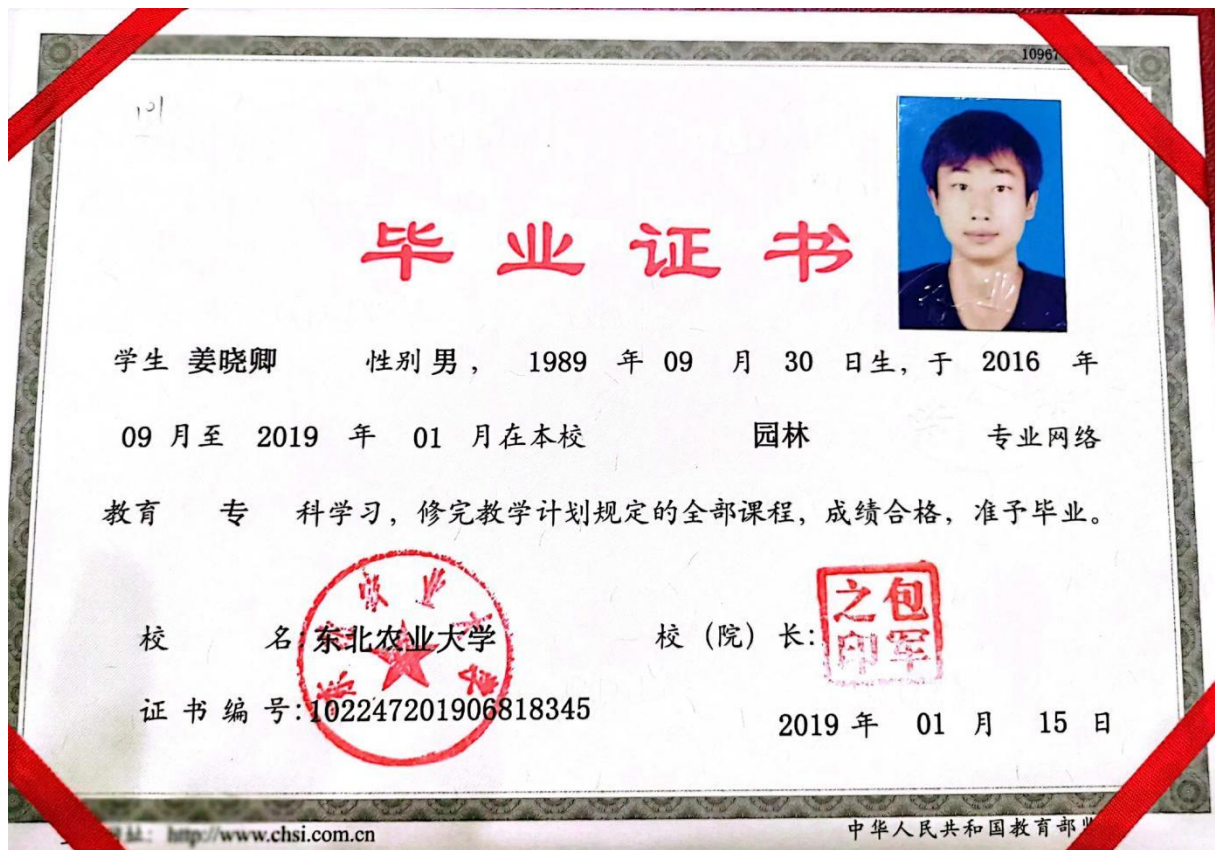 10967
毕业证书
学生 姜晓卿 性别 男， 1989 年 09 月 30 日生，于 2016 年
09 月至 2019 年 01 月在本校 园林 专业网络
教育 专 科学习，修完教学计划规定的全部课程，成绩合格，准予毕业。
校 名：东北农业大学 校（院）长：包军之印
证书编号：102247201906818345
2019 年 01 月 15 日
http://www.chsi.com.cn 中华人民共和国教育部